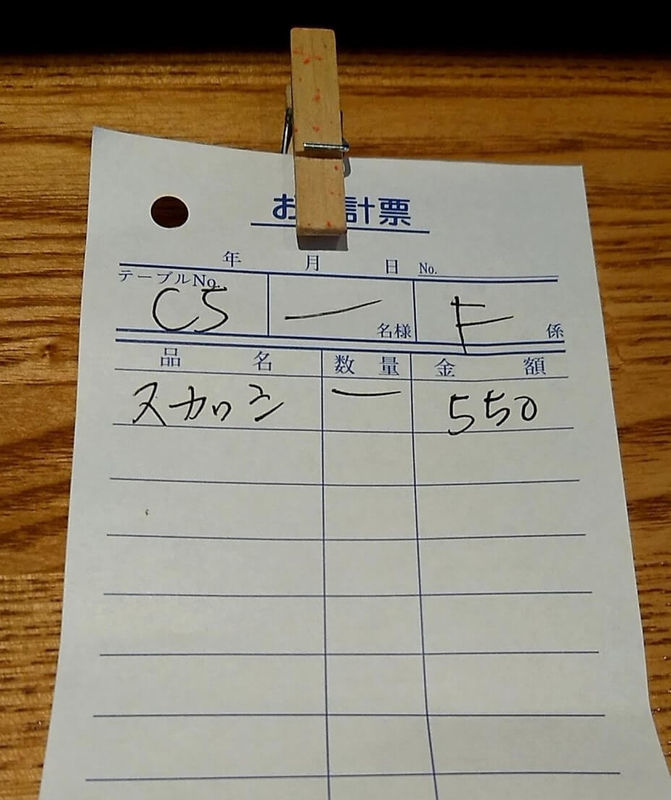 お計票
年 月 日 No.
テーブルNo. C5 一 名様 F 係
品名 数量 金額
スカロン 一 550